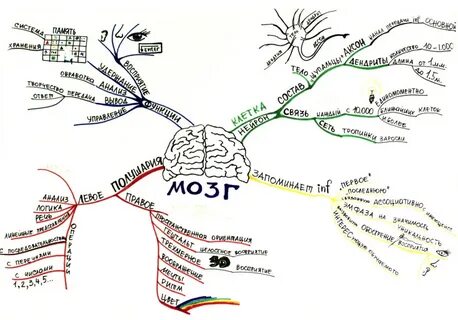 МОЗГ
ФУНКЦИИ
ВОСПРИЯТИЕ
УДЕРЖАНИЕ
ПАМЯТЬ
СИСТЕМА
ХРАНЕНИЯ
АНАЛИЗ
ОБРАБОТКА
ВЫВОД
ПЕРЕДАЧА
ТВОРЧЕСТВО
ОТВЕТ
УПРАВЛЕНИЕ
КЛЕТКА
НЕЙРОН
СОСТАВ
ТЕЛО
"ЩУПАЛЬЦЫ"
АКСОН
КАНАЛ ПЕРЕДАЧИ inf ОСНОВНОЙ
ДЕНДРИТЫ
КОЛИЧЕСТВО
ДЛИНА ОТ 1 ММ.
ДО 1,5 М.
СВЯЗЬ
КАЖДЫЙ С 10.000
КЛЕТОК
СЕТЬ ТРОПИНКИ
ЗАПОМИНАЕТ inf
"ПЕРВОЕ"
"ПОСЛЕДНЮЮ"
АССОЦИАТИВНО
ЭМФАЗА НА ЗНАЧИМОСТЬ
УНИКАЛЬНОСТЬ
ВОСПРИЯТИЯ
ИНТЕРЕС
ПОЛУШАРИЯ
ЛЕВОЕ
АНАЛИЗ
ЛОГИКА
РЕЧЬ
ЛИНЕЙНЫЕ
ОПЕРАЦИЯ
С ПОСЛЕДОВАТЕЛЬНОСТЬЮ
С ПЕРЕЧНЯМИ
С ЧИСЛАМИ
1, 2, 3, 4, 5...
ПРАВОЕ
ПРОСТРАНСТВЕННАЯ ОРИЕНТАЦИЯ
ГЕШТАЛЬТ ЦЕЛОСТНОЕ ВОСПРИЯТИЕ
ТРЕХМЕРНОЕ 3D ВОСПРИЯТИЕ
ВООБРАЖЕНИЕ
МЕЧТЫ
РИТМ
ЦВЕТ